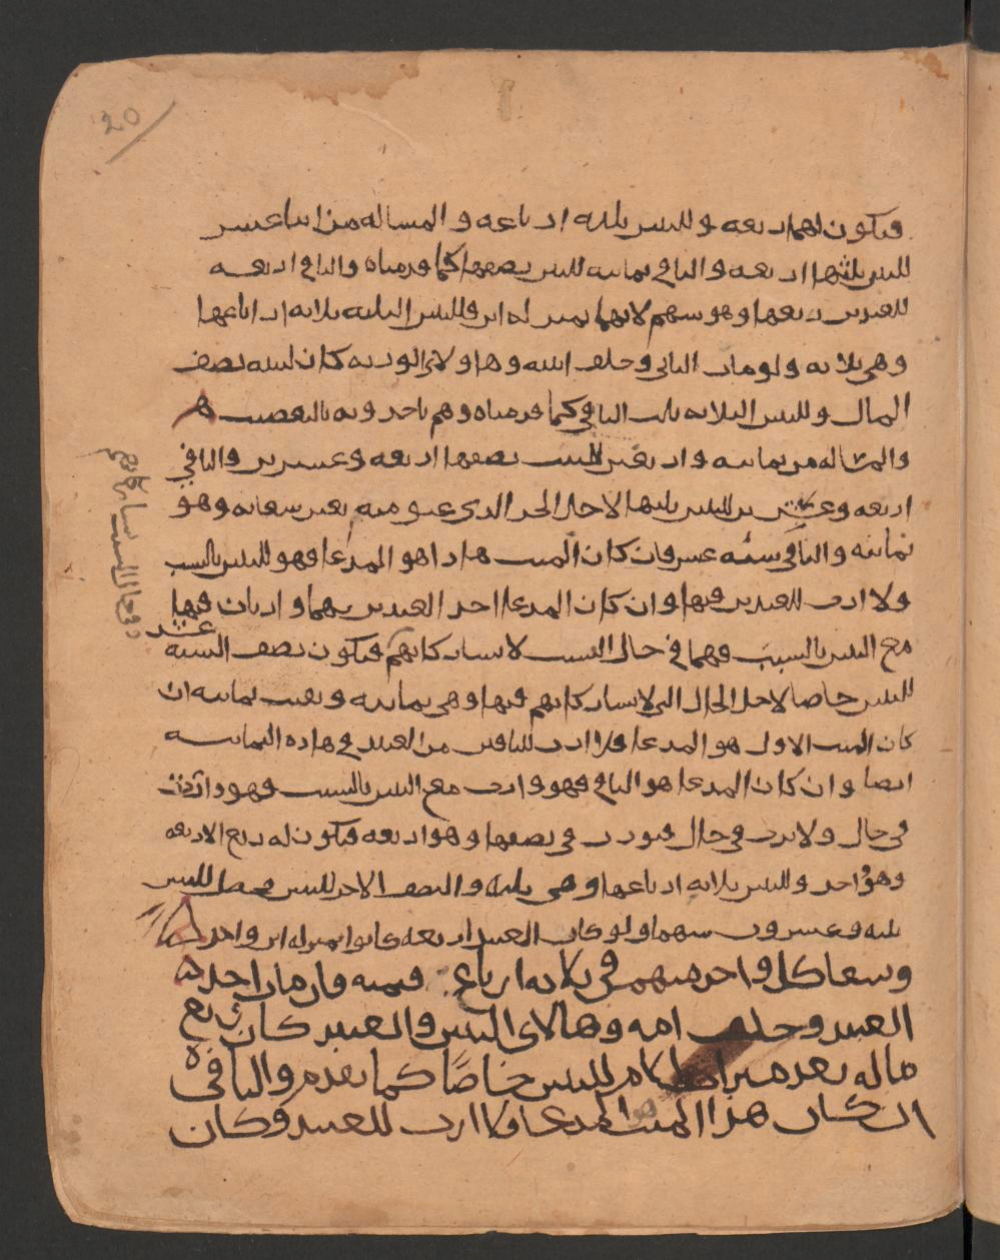 20
فيكون لهما اربعه وللبنين ثلثه ارباعه والمساله من اثنا عشر
للبنين ثلثها اربعه والباقي ثمانيه للبنين نصفها كما قدمناه والباقي اربعه
للعبدين ربعها وهو سهم لانهما بمنزله ابن وللبنين الثلثه ثلاثه ارباعها
وهي ثلاثه ولو مات الثاني وخلف ابنته وهاولاي الورثه كان لبنته نصف
المال وللبنين الثلاثه ثلث الباقي كما قدمناه وهم ياخذونه بالتعصيب
والمساله من ثمانيه واربعين للبنت نصفها اربعه وعشرين والباقي
اربعه وعشرين للبنين ثلثها لاجل الحر الذي عتق منهم بغير سعايه وهو
ثمانيه والباقي سته عشر فان كان الميت هاذا هو المدعا فهو للبنين بالنسب
ولا ارث للعبدين فيها وان كان المدعا احد العبدين فهما وارثان فيها
مع البنين بالسبب فهما في حال النسب لا يشاركانهم فيكون نصف السته
عشر
للبنين خاصا لاجل الحال التي لا يشاركانهم فيها وهي ثمانيه وبقيت ثمانيه ان
كان الميت الاول هو المدعا فلا ارث للباقين من العبيد في هاذه الثمانيه
ايضا وان كان المدعا هو الباقي فهو وارث مع البنين بالنسب فهو وارث
في حال ولا يرث في حال فيورث في نصفها وهو اربعه فيكون له ربع الاربعه
وهو واحد وللبنين ثلاثه ارباعها وهي ثلثه والنصف الاخر للبنين فحصل للبنين
ثلثه وعشرون سهما ولو كان العبيد اربعه كانوا بمنزله ابن واحد
وسعا كل واحد منهم في ثلاثه ارباع قيمته فان مات احد
العبيد وخلف امه وهالاي البنين والعبيد كان ربع
ماله بعد ميراث الام للبنين خاصًا كما تقدم والباقي
ان كان هذا الميت المدعا فلا ارث للعبيد وكان